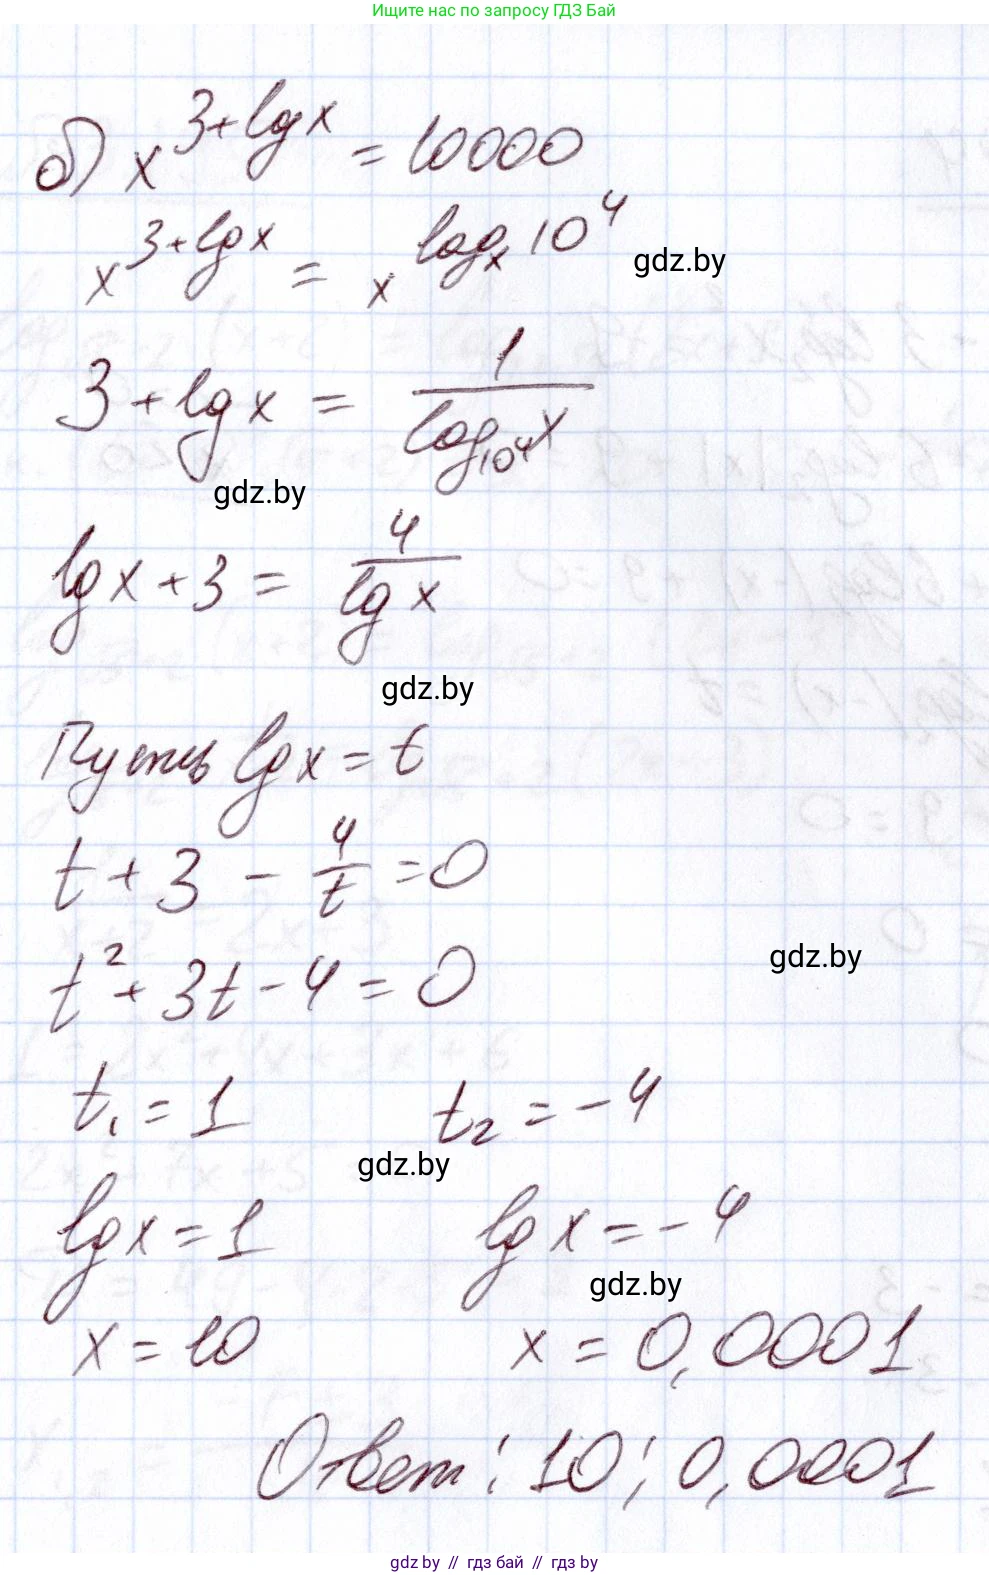 Ищите нас по запросу ГДЗ Бай
б) x^(3+lg x) = 10000
x^(3+lg x) = x^(log_x 10^4)
gdz.by
3 + lg x = 1/(log_(10^4) x)
gdz.by
lg x + 3 = 4/(lg x)
gdz.by
Пусть lg x = t
t + 3 - 4/t = 0
t² + 3t - 4 = 0
gdz.by
t₁ = 1 t₂ = -4
gdz.by
lg x = 1 lg x = -4
gdz.by
x = 10 x = 0,0001
Ответ: 10; 0,0001
gdz.by // гдз бай // гдз by